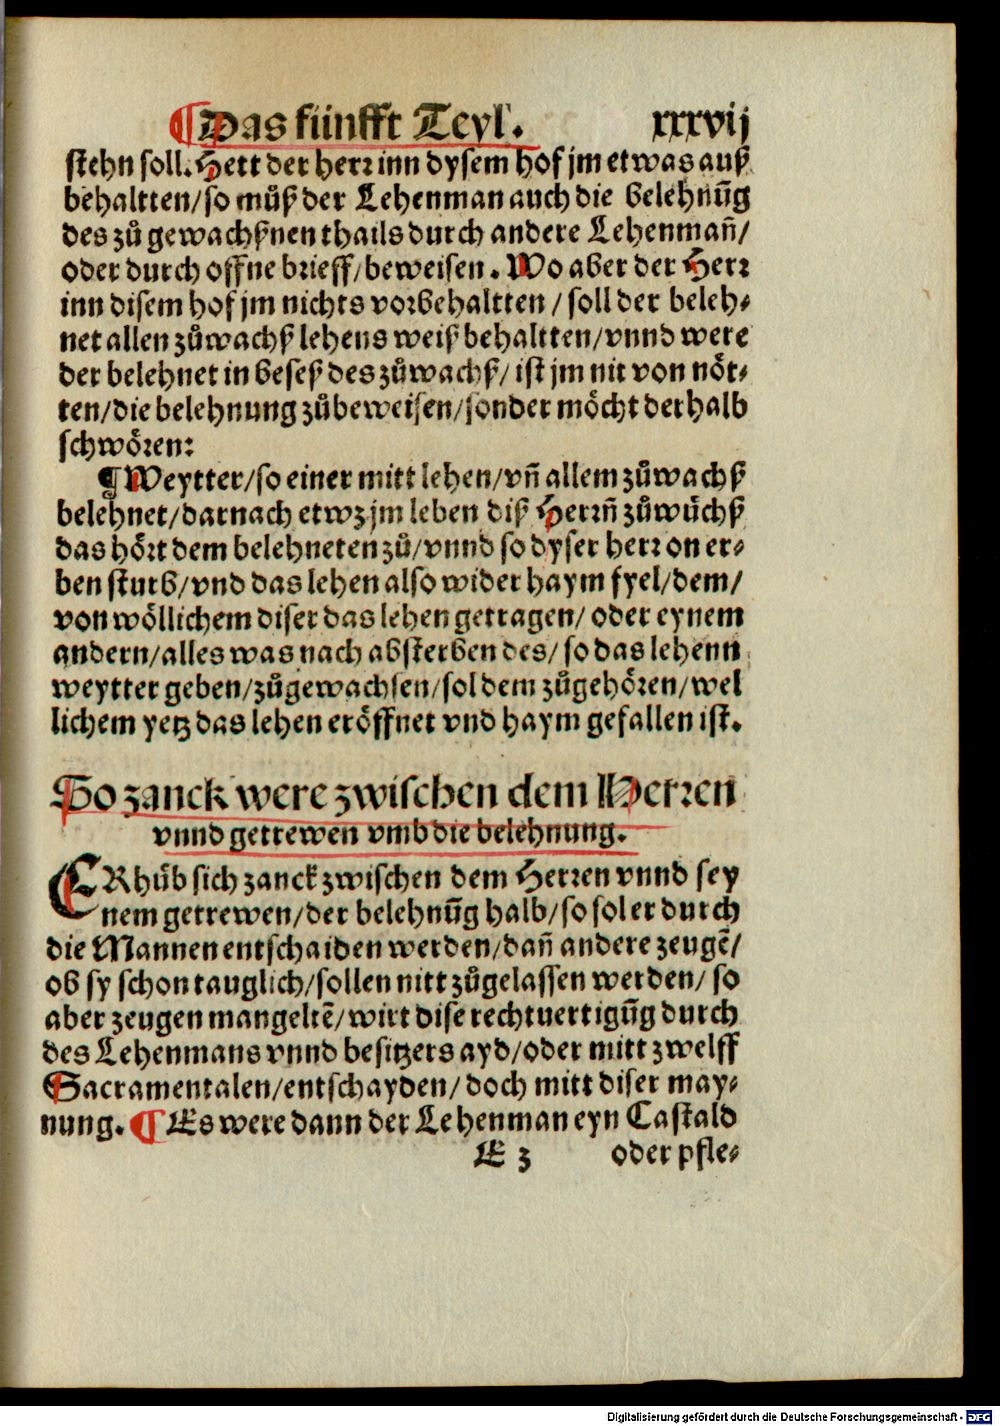 ¶ Das fünfft Teyl. xxxvij
stehn soll. Hett der herr inn dysem hof jm etwas auß
behaltten/so můß der Lehenman auch die belehnūg
des zů gewachßnen thails durch andere Lehenmañ/
oder durch offne brieff/beweisen. Wo aber der Herr
inn disem hof jm nichts vorbehaltten/soll der beleh⸗
net allen zůwachß lehens weiß behaltten/vnnd were
der belehnet in beseß des zůwachß/ist jm nit von nöt⸗
ten/die belehnung zůbeweisen/sonder möcht derhalb
schwören:
¶ Weytter/so einer mitt lehen/vñ allem zůwachß
belehnet/darnach etwz jm leben diß Herrñ zůwůchß
das hört dem belehneten zů/vnnd so dyser herr on er⸗
ben sturb/vnd das lehen also wider haym fyel/dem/
von wöllichem diser das lehen getragen/oder eynem
andern/alles was nach absterben des/so das lehenn
weytter geben/zůgewachsen/sol dem zůgehören/wel
lichem yetz das lehen eröffnet vnd haym gefallen ist.
So zanck were zwischen dem Herren
vnnd getrewen vmb die belehnung.
ERhůb sich zanck zwischen dem Herren vnnd sey
nem getrewen/der belehnūg halb/so sol er durch
die Mannen entschaiden werden/dañ andere zeugē/
ob sy schon tauglich/sollen nitt zůgelassen werden/so
aber zeugen mangeltē/wirt dise rechtuertigūg durch
des Lehenmans vnnd besitzers ayd/oder mitt zwelff
Sacramentalen/entschayden/doch mitt diser may⸗
nung. ¶ Es were dann der Lehenman eyn Castald
E 3 oder pfle⸗
Digitalisierung gefördert durch die Deutsche Forschungsgemeinschaft - DFG